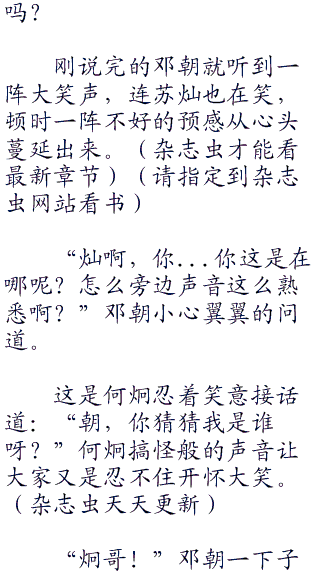 吗？
刚说完的邓朝就听到一
阵大笑声，连苏灿也在笑，
顿时一阵不好的预感从心头
蔓延出来。（杂志虫才能看
最新章节）（请指定到杂志
虫网站看书）
“灿啊，你...你这是在
哪呢？怎么旁边声音这么熟
悉啊？”邓朝小心翼翼的问
道。
这是何炯忍着笑意接话
道：“朝，你猜猜我是谁
呀？”何炯搞怪般的声音让
大家又是忍不住开怀大笑。
（杂志虫天天更新）
“炯哥！”邓朝一下子